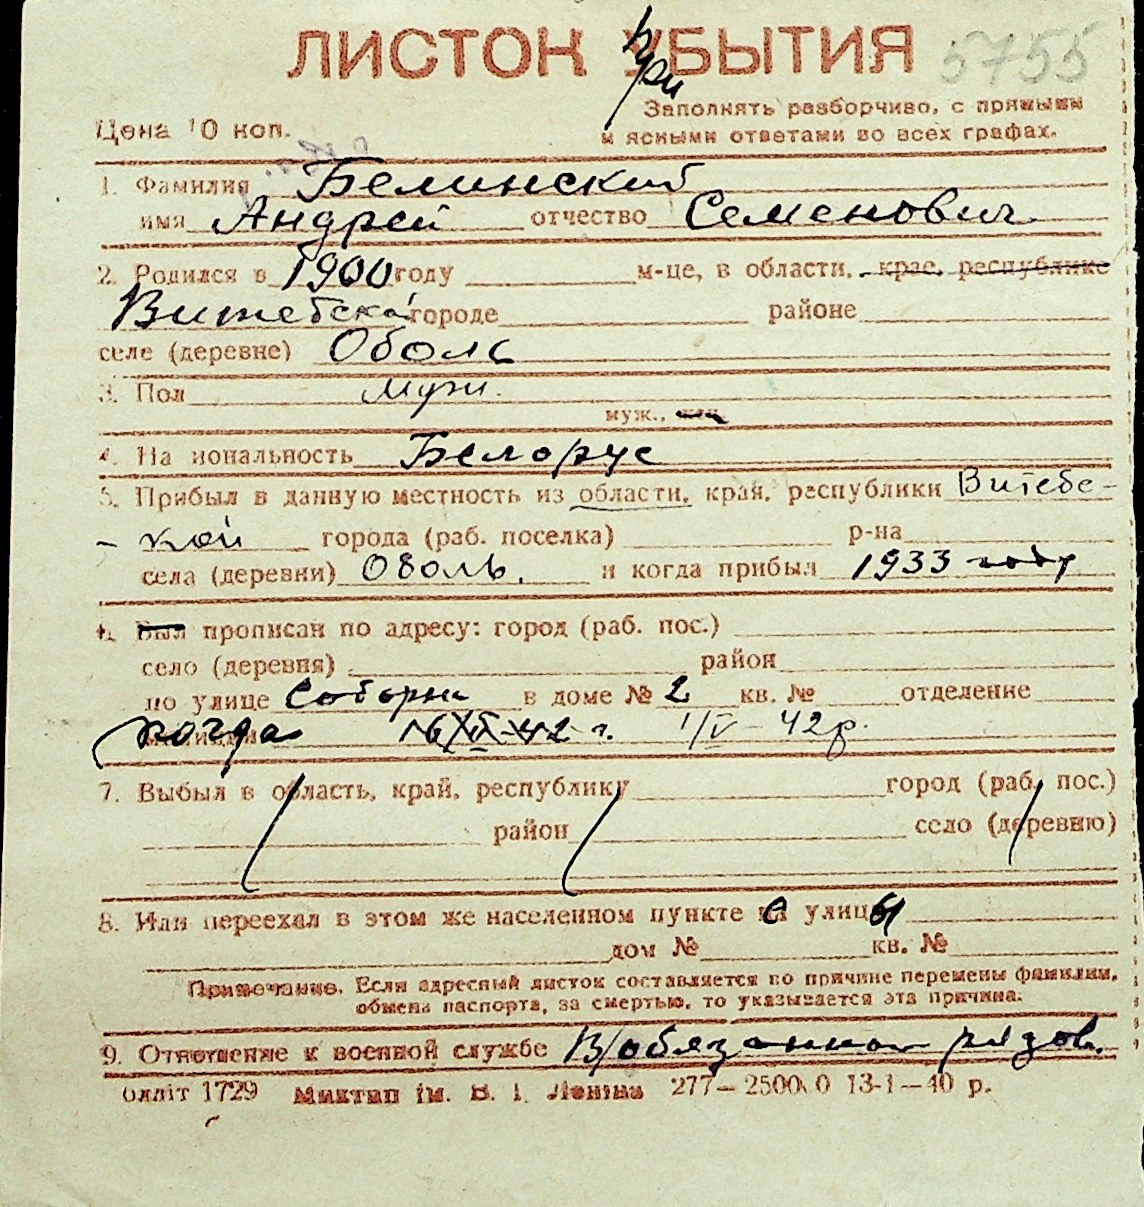 ЛИСТОК УБЫТИЯ 5755
при
Заполнять разборчиво, с прямыми
Цена 10 коп. и ясными ответами во всех графах.
1. Фамилия Белинский
имя Андрей отчество Семенович
2. Родился в 1900 году м-це, в области, крае, республике
Витебска городе районе
селе (деревне) Оболь
3. Пол муж.
муж., жен.
4. Национальность Белорус
5. Прибыл в данную местность из области, края, республики Витебс-
- кой города (раб. поселка) р-на
села (деревни) Оболь. и когда прибыл 1933 году
6. Был прописан по адресу: город (раб. пос.)
село (деревня) район
по улице Соборна в доме № 2 кв. № отделение
когда 1/V - 42 р.
7. Выбыл в область, край, республику город (раб. пос.)
район село (деревню)
8. Или переехал в этом же населенном пункте с улицы
дом № кв. №
Примечание. Если адресный листок составляется по причине перемены фамилии,
обмена паспорта, за смертью, то указывается эта причина.
9. Отношение к военной службе В/обязанной рядов.
блліт 1729 Миктип ім. В. І. Леніна 277—25000 13-1—40 р.